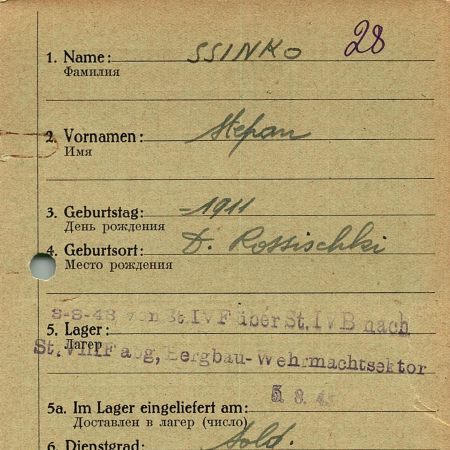 28
1. Name: SSINKO
Фамилия
2. Vornamen: Stepan
Имя
3. Geburtstag: -1911
День рождения
4. Geburtsort: D. Rossischki
Место рождения
8-8-43 von St. IV F über St. IV B nach
5. Lager:
Лагерь
St. VIII F abg, Bergbau-Wehrmachtsektor
5a. Im Lager eingeliefert am: 5. 8. 43
Доставлен в лагер (число)
6. Dienstgrad: Sold.